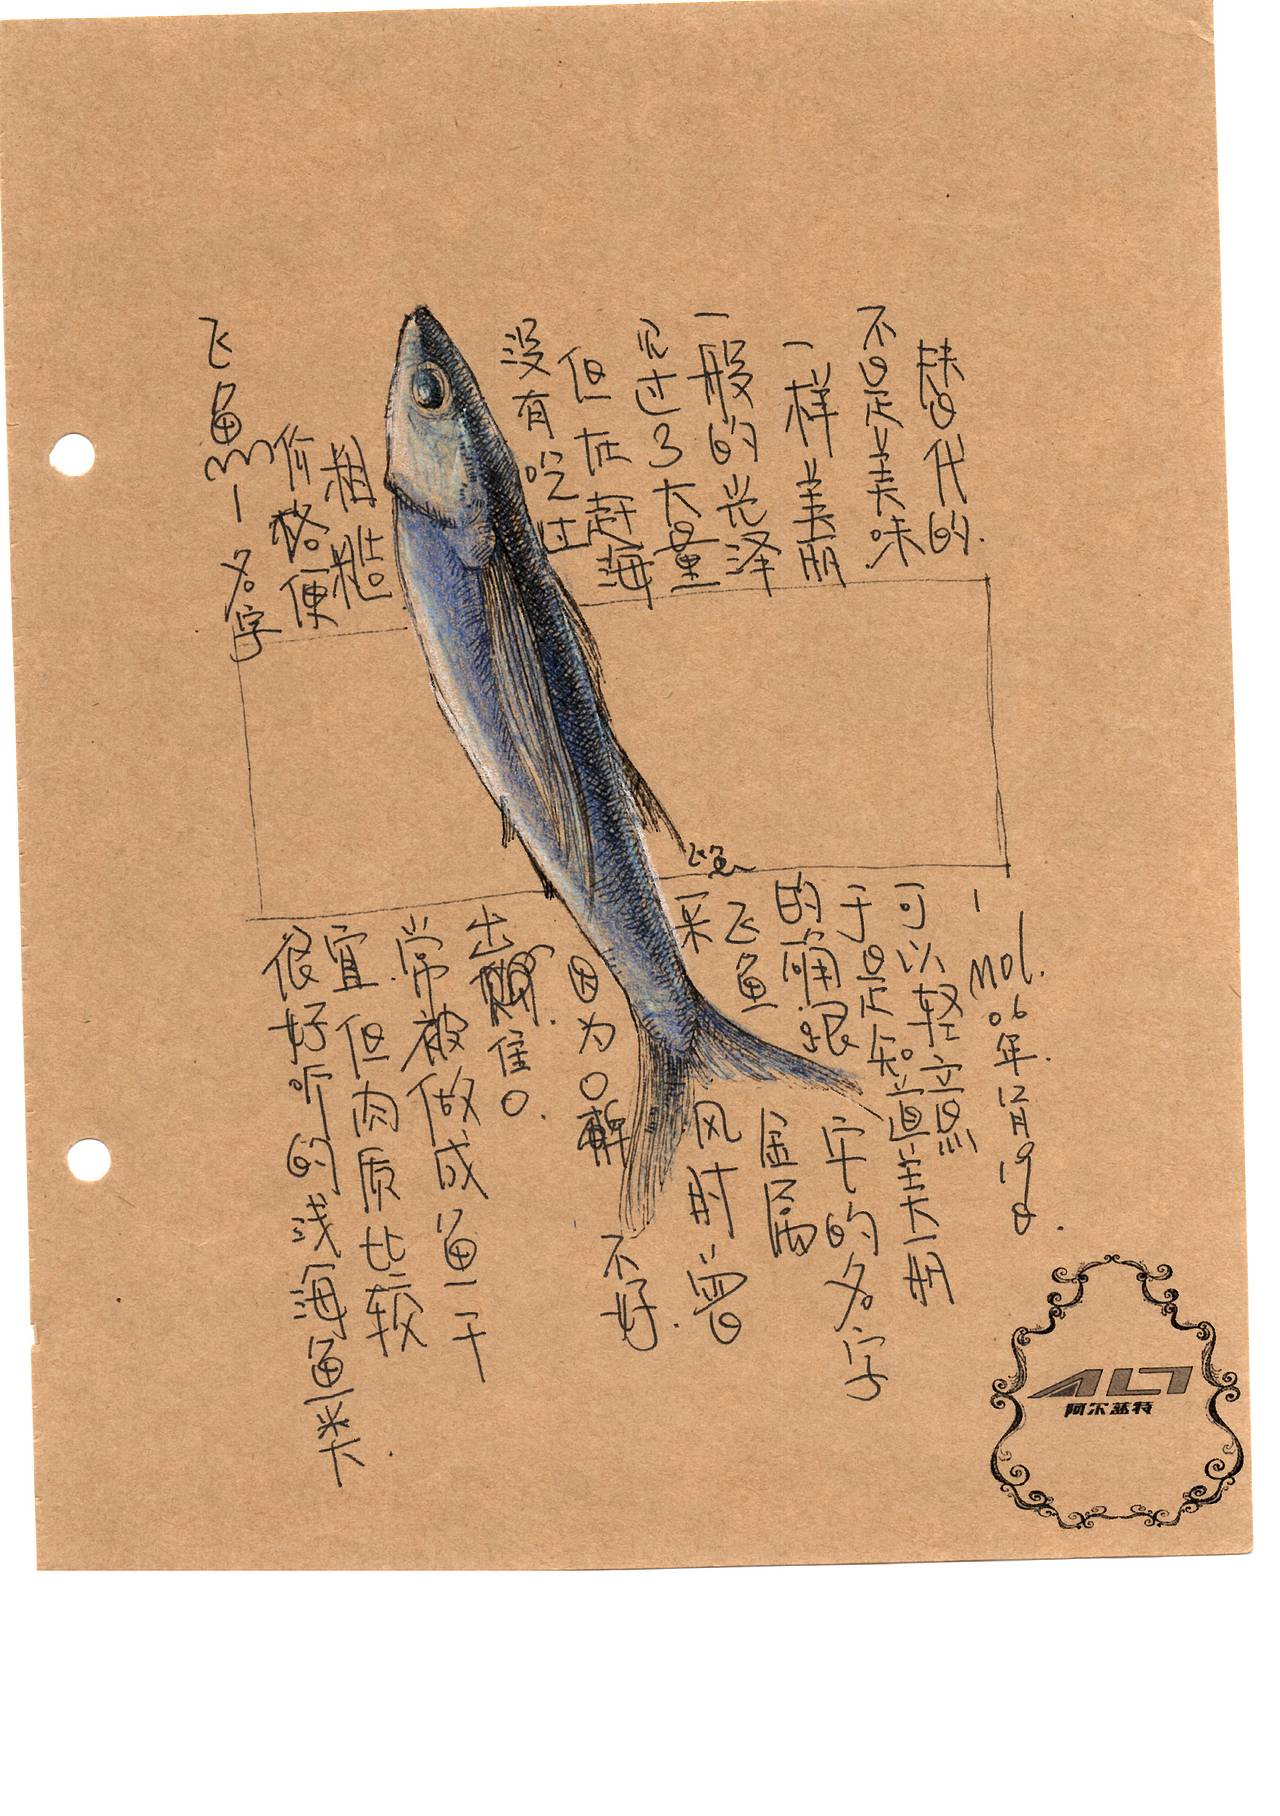 飞鱼—名字
很好听的浅海鱼类.
价格便
宜.但肉质比较
粗糙
常被做成鱼干
出售口.
没有吃过
因为口碑不好.
但在赶海
采风时曾
见过了大量
飞鱼
飞鱼金属
一般的光泽
的确跟它的名字
一样美丽
于是知道美丽
不是美味
可以轻意
替代的.
— mol.
06年.12月19日.